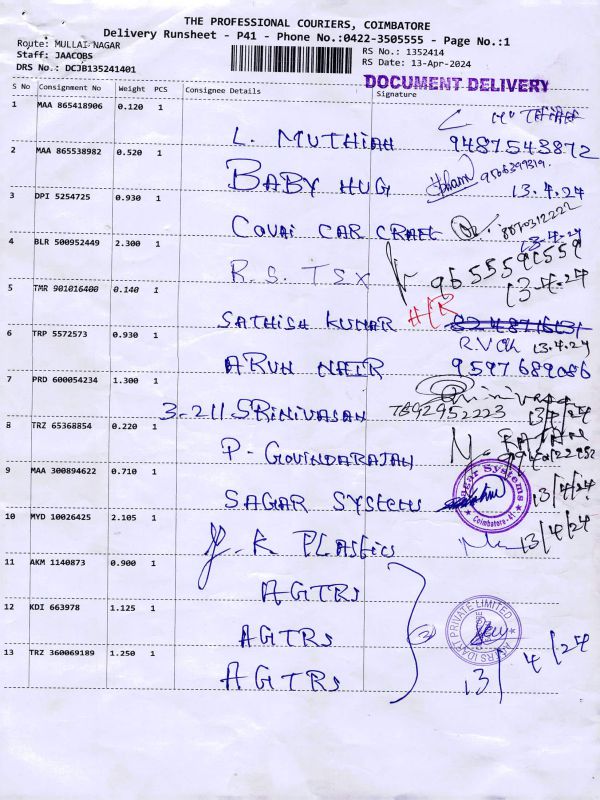 THE PROFESSIONAL COURIERS, COIMBATORE
Delivery Runsheet - P41 - Phone No.:0422-3505555 - Page No.:1
Route: MULLAI NAGAR
RS No.: 1352414
Staff: JAACOBS
RS Date: 13-Apr-2024
DRS No.: DCJB135241401
DOCUMENT DELIVERY
S No Consignment No Weight PCS Consignee Details Signature
1 MAA 865418906 0.120 1
L. MUTHIAH 9487543872
2 MAA 865538982 0.520 1
BABY HUG 13.4.24
3 DPI 5254725 0.930 1
COVAI CAR CRAFT 13-4-24
4 BLR 500952449 2.300 1
R.S. TEX 13-4-24
5 TMR 901016400 0.140 1
H/R
SATHISH KUMAR
6 TRP 5572573 0.930 1
13.4.24
ARUN NAIR 9597689086
7 PRD 600054234 1.300 1
3-211 SRINIVASAN 13/4/24
8 TRZ 65368854 0.220 1
P. GOVINDARAJAN
9 MAA 300894622 0.710 1
SAGAR SYSTEMS 13/4/24
Sagar Systems
Coimbatore-41
10 MYD 10026425 2.105 1
J. K PLASTICS 13/4/24
11 AKM 1140873 0.900 1
AGTRS
12 KDI 663978 1.125 1
AGTRS
PRIVATE LIMITED
13 TRZ 360069189 1.250 1
AGTRS 13/4/24